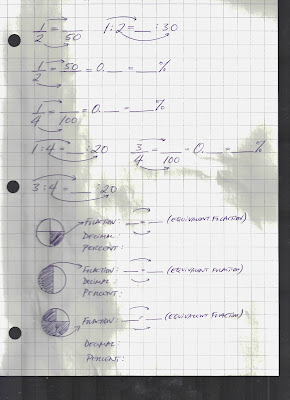 1/2 = __/50 1:2 = __:30
1/2 = 50/__ = 0.__ = __%
1/4 = __/100 = 0.__ = __%
1:4 = __:20 3/4 = __/100 = 0.__ = __%
3:4 = __:20
FRACTION: __ = __ (EQUIVALENT FRACTION)
DECIMAL:
PERCENT:
FRACTION: __ = __ (EQUIVALENT FRACTION)
DECIMAL:
PERCENT:
FRACTION: __ = __ (EQUIVALENT FRACTION)
DECIMAL:
PERCENT: